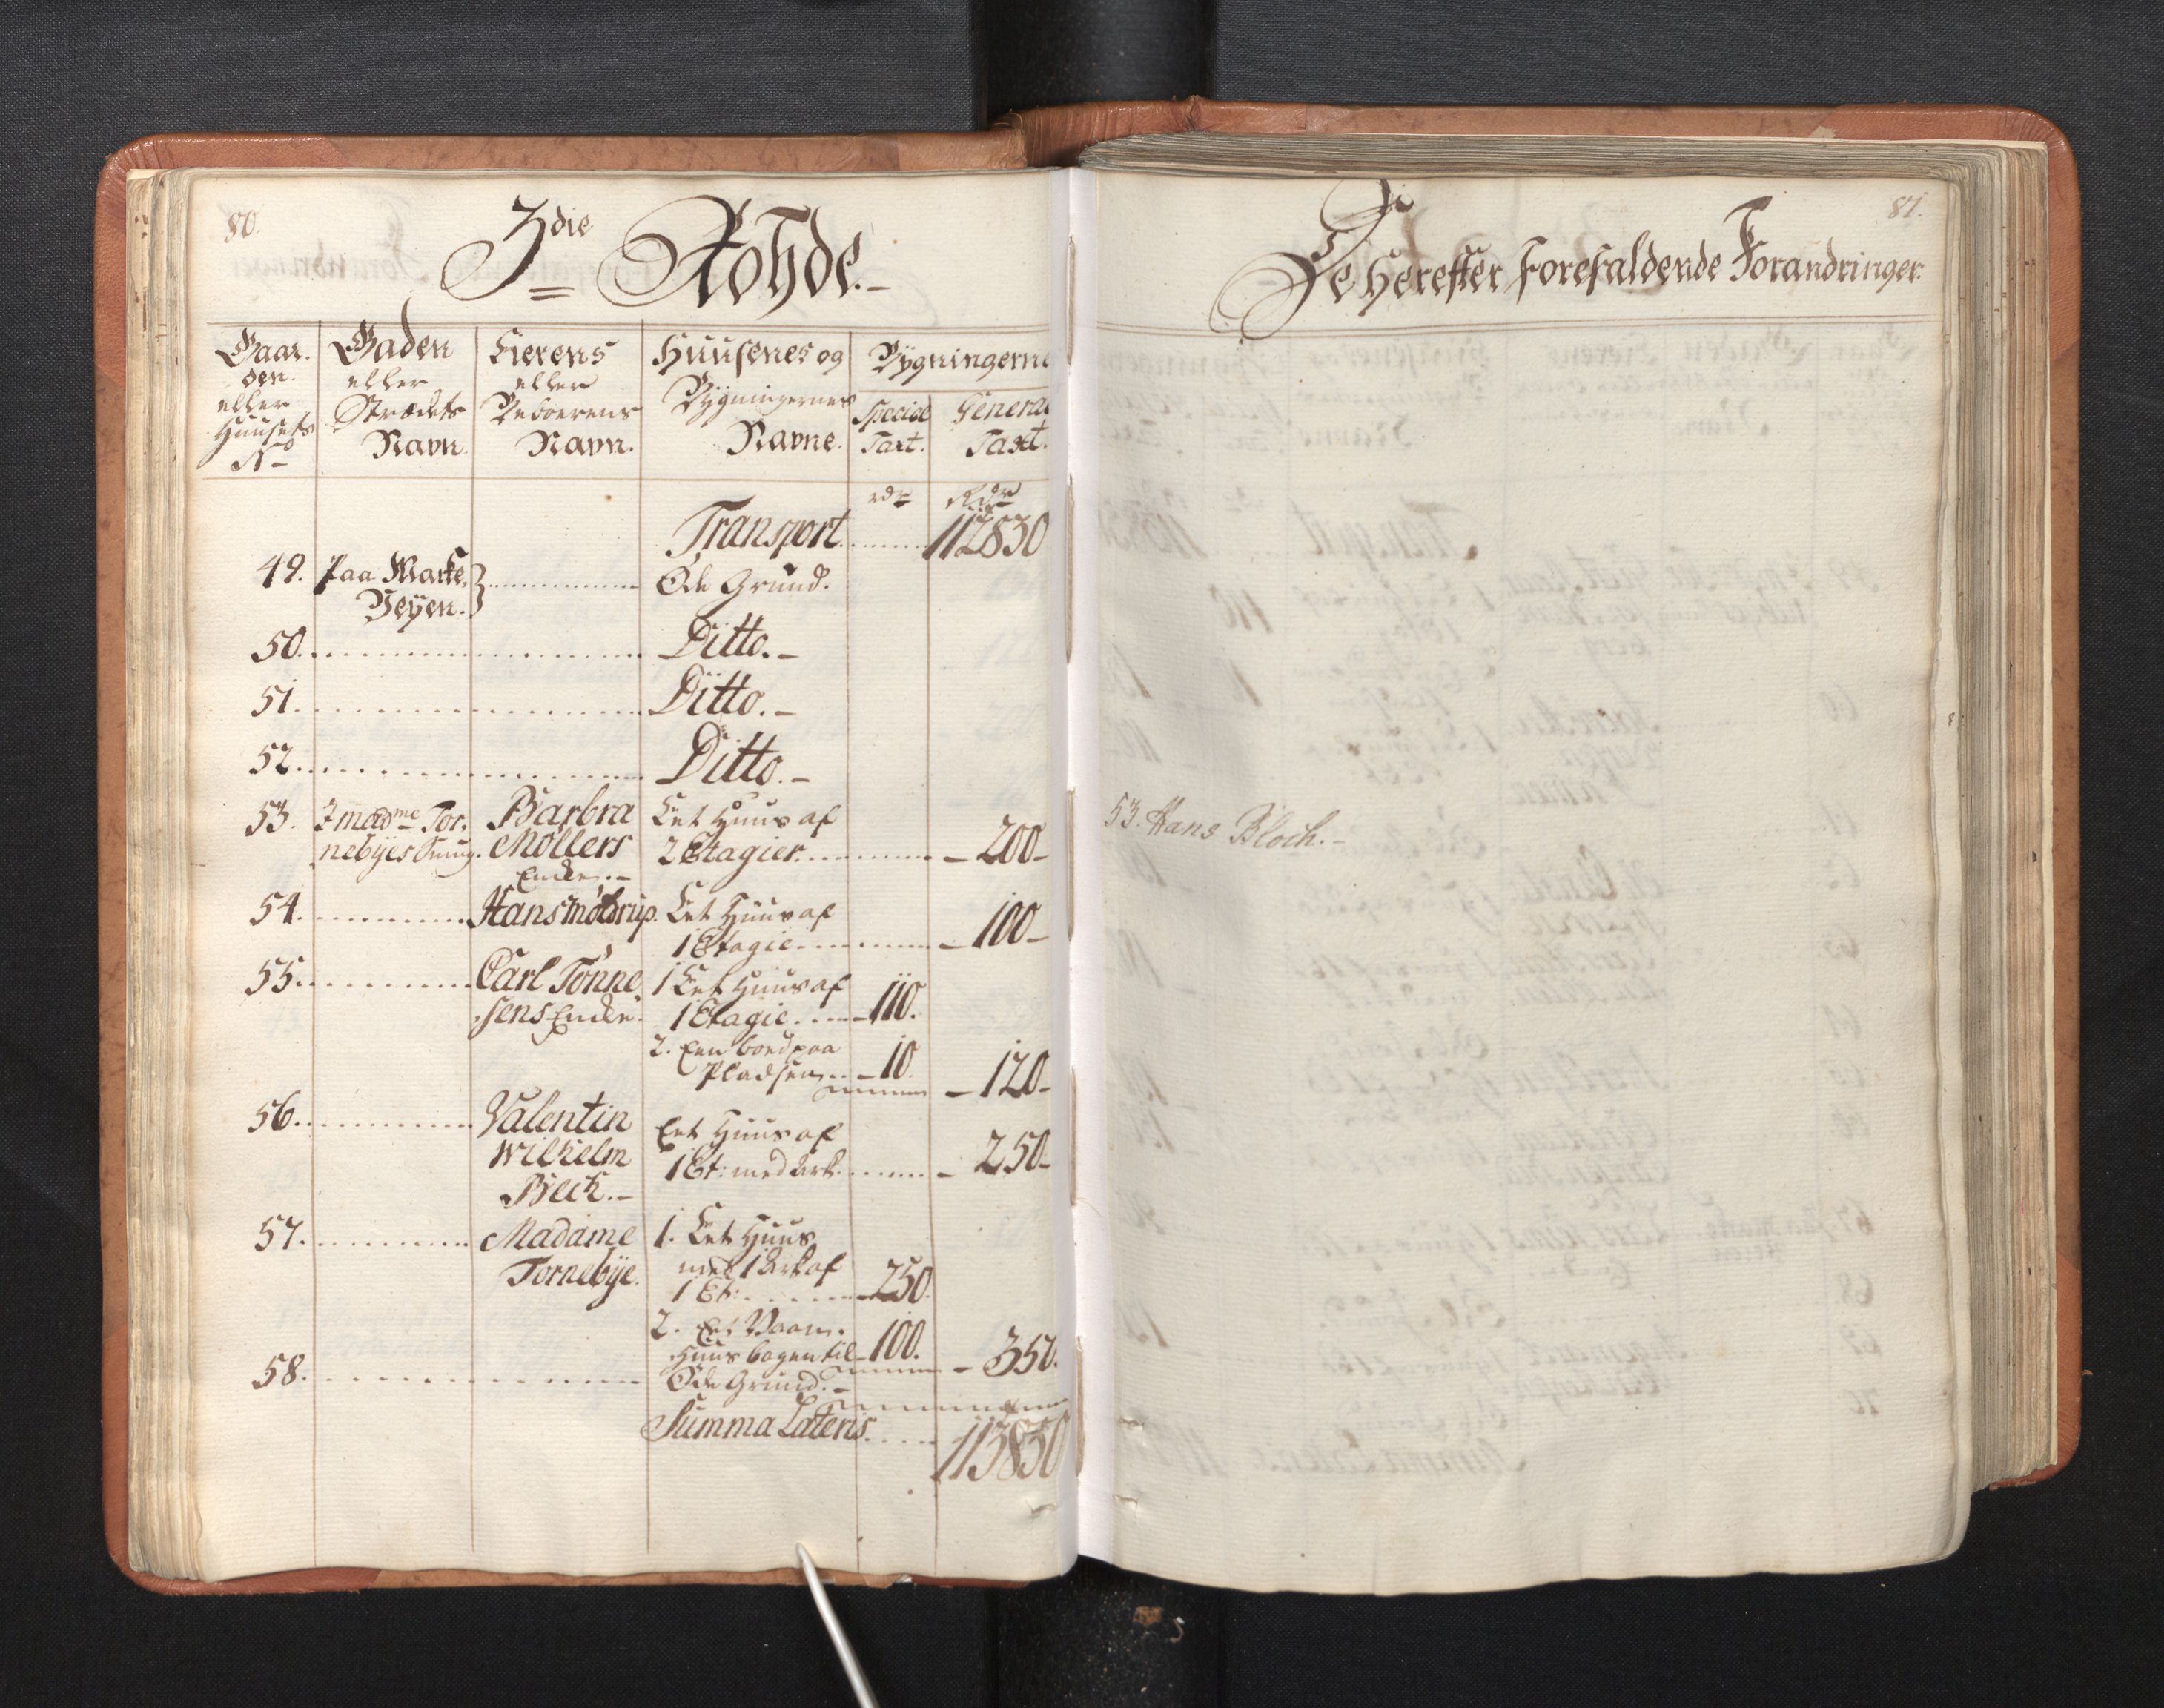 80.
3die Rohde.
Gaar- Gaden Eierens Huusenes og Bygningerne
den eller eller Bygningernes
eller Strædets Beboerens Special General
Huusets Navn. Navn. Navne. Taxt. Taxt.
No
rdr Rdr
Transport 112830
49. Paa Marke- Øde Grund.
Veÿen.
50. Ditto.
51. Ditto.
52. Ditto.
53. I madme Tor- Barbra Eet Huus af
nebÿes Smug. Möllers 2 Etagier. 200
Enke.
54. Hans Möldrup. Eet Huus af
1 Etagie 100
55. Carl Tönne- 1 Eet Huus af
sens Enke. 1 Etagie. 110.
2. Een boed paa
Pladsen 10. 120
56. Valentin Eet Huus af
Wilhelm 1 Et: med Ark. 250
Beck.
57. Madame 1. Eet Huus
Tornebÿe. med 1 Ark af
1 Et: 250.
2. Eet Vaan-
Huus bagen til 100. 350.
58. Øde Grund.
Summa Lateris. 113850
81.
De Herefter Forefaldende Forandringer.
53. Hans Bloch.